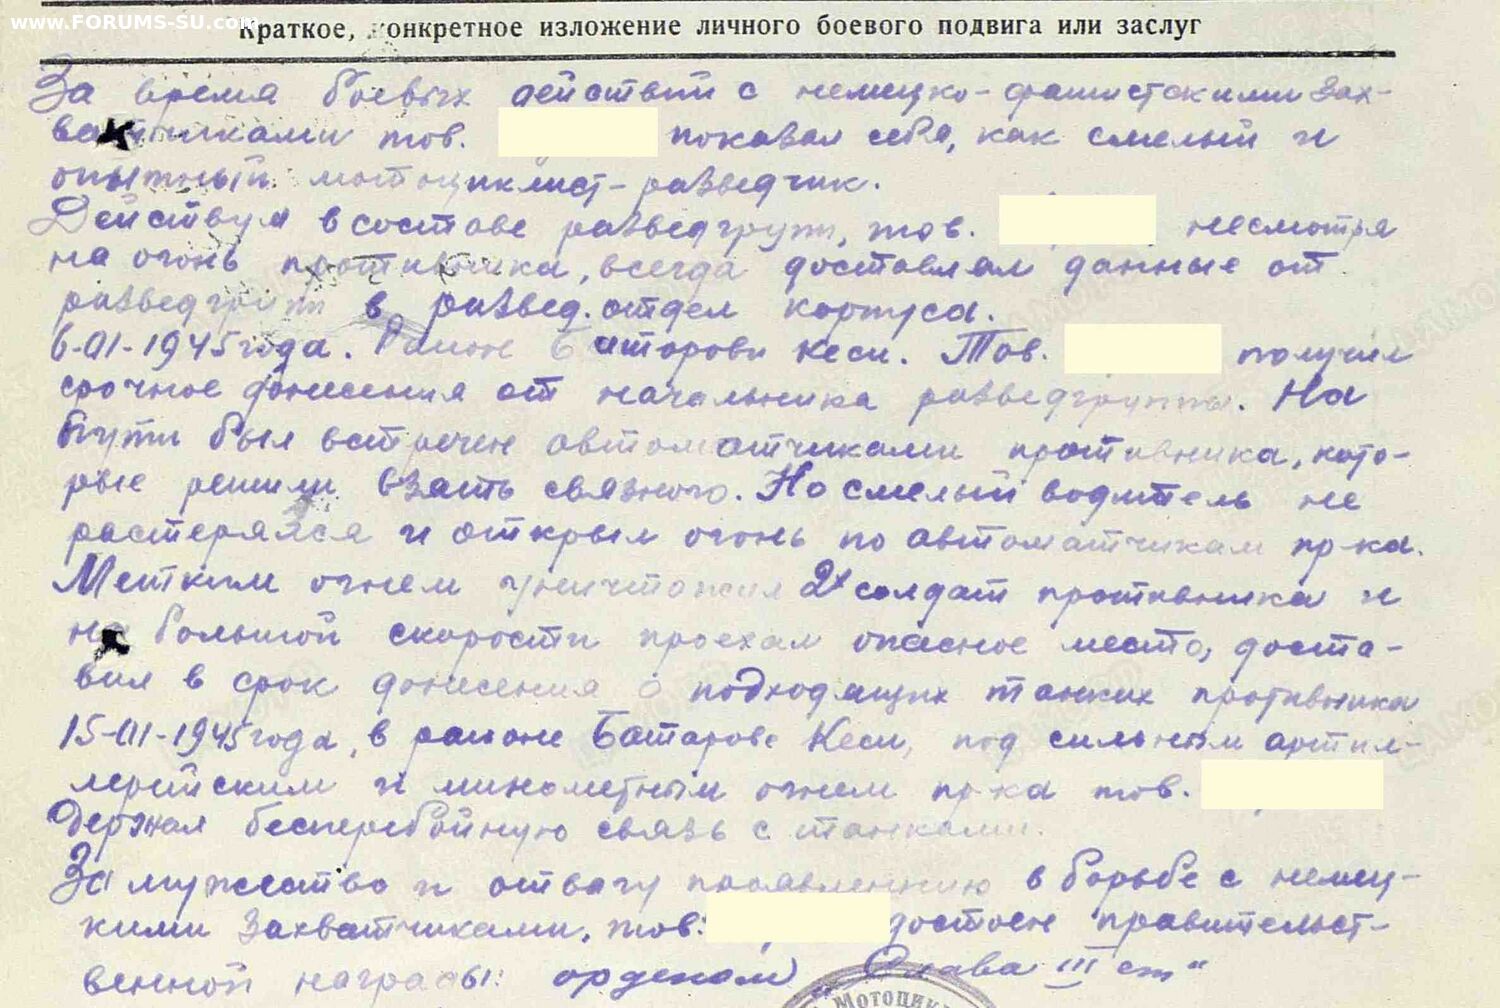 www.FORUMS-SU.com
Краткое, конкретное изложение личного боевого подвига или заслуг
За время боевых действий с немецко-фашистскими зах-
ватчиками тов. показал себя, как смелый и
опытный мотоциклист-разведчик.
Действуя в составе разведгрупп, тов. несмотря
на огонь противника, всегда доставлял данные от
разведгрупп в развед. отдел корпуса.
6-01-1945 года. Район Баторови Кеси. Тов. получил
срочное донесения от начальника разведгруппы. На
пути был встречен автоматчиками противника, кото-
рые решили взять связного. Но смелый водитель не
растерялся и открыл огонь по автоматчикам пр-ка.
Метким огнем уничтожил 2х солдат противника и
на большой скорости проехал опасное место, доста-
вил в срок донесения о подходящих танках противника
15-01-1945 года, в районе Батарове Кеси, под сильным артил-
лерийским и минометным огнем пр-ка тов.
держал бесперебойную связь с танками.
За мужество и отвагу проявленную в борьбе с немец-
кими захватчиками, тов. достоен правительст-
венной награды: орденом „Слава III ст"
Мотоцик